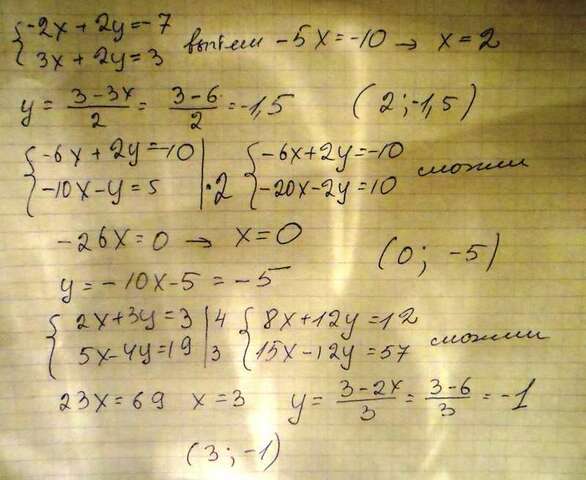 { -2x + 2y = -7
{ 3x + 2y = 3 вычтем -5x = -10 → x = 2
y = (3 - 3x)/2 = (3 - 6)/2 = -1,5 (2 ; -1,5)
{ -6x + 2y = -10 | { -6x + 2y = -10
{ -10x - y = 5 | · 2 { -20x - 2y = 10 сложим
-26x = 0 → x = 0
y = -10x - 5 = -5 (0 ; -5)
{ 2x + 3y = 3 | 4 { 8x + 12y = 12
{ 5x - 4y = 19 | 3 { 15x - 12y = 57 сложим
23x = 69 x = 3 y = (3 - 2x)/3 = (3 - 6)/3 = -1
(3 ; -1)